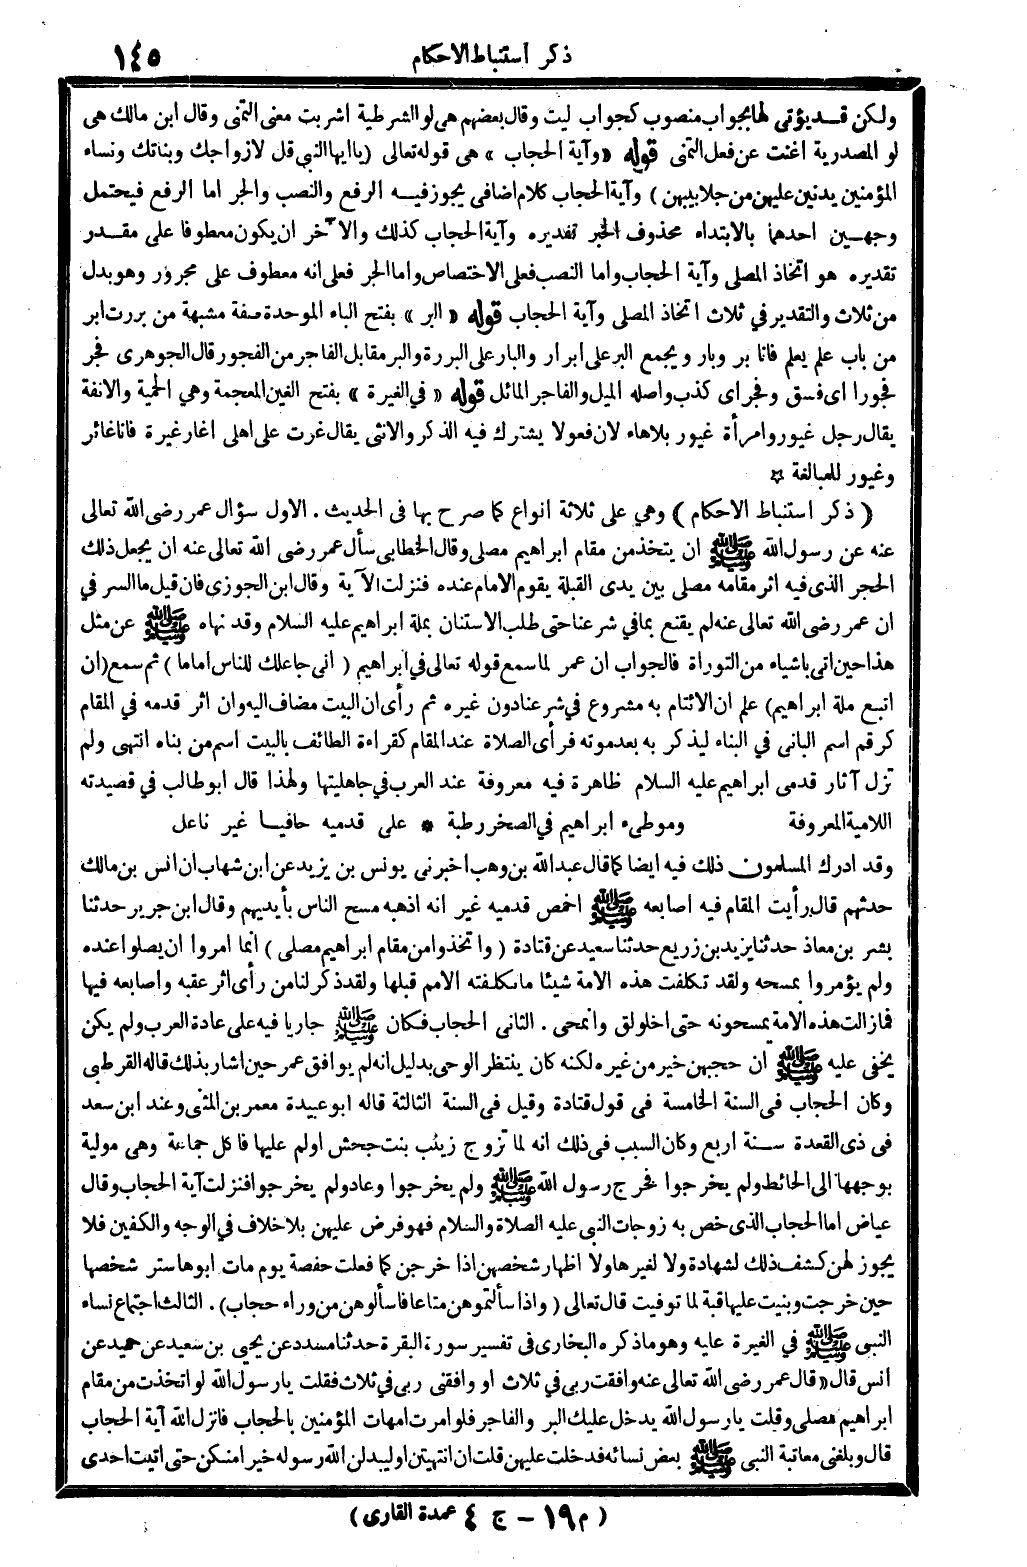 ذكر استنباط الاحكام ١٤٥
ولكن قد يؤتى لها بجواب منصوب كجواب ليت وقال بعضهم هى لو الشرطية اشربت معنى التمنى وقال ابن مالك هى
لو المصدرية اغنت عن فعل التمنى قوله « وآية الحجاب » هى قوله تعالى ( ياايها النبي قل لازواجك وبناتك ونساء
المؤمنين يدنين عليهن من جلابيبهن ) وآية الحجاب كلام اضافى يجوز فيه الرفع والنصب والجر اما الرفع فيحتمل
وجهين احدهما بالابتداء محذوف الخبر تقديره وآية الحجاب كذلك والآخر ان يكون معطوفا على مقدر
تقديره هو اتخاذ المصلى وآية الحجاب واما النصب فعلى الاختصاص واما الجر فعلى انه معطوف على مجرور وهو بدل
من ثلاث والتقدير في ثلاث اتخاذ المصلى وآية الحجاب قوله « البر » بفتح الباء الموحدة صفة مشبهة من بررت ابر
من باب علم يعلم فانا بر وبار ويجمع البر على ابرار والبار على البررة والبر مقابل الفاجر من الفجور قال الجوهرى فجر
فجورا اى فسق وفجر اى كذب واصله الميل والفاجر المائل قوله « في الغيرة » بفتح الغين المعجمة وهي الحمية والانفة
يقال رجل غيور وامرأة غيور بلاهاء لان فعولا يشترك فيه الذكر والانثى يقال غرت على اهلى اغار غيرة فانا غائر
وغيور للمبالغة ☆
( ذكر استنباط الاحكام ) وهي على ثلاثة انواع كما صرح بها فى الحديث . الاول سؤال عمر رضى الله تعالى
عنه عن رسول الله ﷺ ان يتخذ من مقام ابراهيم مصلى وقال الخطابى سأل عمر رضى الله تعالى عنه ان يجعل ذلك
الحجر الذى فيه اثر مقامه مصلى بين يدى القبلة يقوم الامام عنده فنزلت الآية وقال ابن الجوزى فان قيل ما السر في
ان عمر رضى الله تعالى عنه لم يقنع بما في شرعنا حتى طلب الاستنان بملة ابراهيم عليه السلام وقد نهاه ﷺ عن مثل
هذا حين اتى باشياء من التوراة فالجواب ان عمر لما سمع قوله تعالى في ابراهيم ( انى جاعلك للناس اماما ) ثم سمع (ان
اتبع ملة ابراهيم) علم ان الائتمام به مشروع في شرعنا دون غيره ثم رأى ان البيت مضاف اليه وان اثر قدمه في المقام
كرقم اسم البانى في البناء ليذكر به بعد موته فرأى الصلاة عند المقام كقراءة الطائف بالبيت اسم من بناه انتهى ولم
تزل آثار قدمى ابراهيم عليه السلام ظاهرة فيه معروفة عند العرب في جاهليتها ولهذا قال ابوطالب في قصيدته
اللامية المعروفة وموطىء ابراهيم في الصخر رطبة * على قدميه حافيا غير ناعل
وقد ادرك المسلمون ذلك فيه ايضا كما قال عبدالله بن وهب اخبرنى يونس بن يزيد عن ابن شهاب ان انس بن مالك
حدثهم قال رأيت المقام فيه اصابعه ﷺ اخمص قدميه غير انه اذهبه مسح الناس بأيديهم وقال ابن جرير حدثنا
بشر بن معاذ حدثنا يزيد بن زريع حدثنا سعيد عن قتادة ( واتخذوا من مقام ابراهيم مصلى ) انما امروا ان يصلوا عنده
ولم يؤمروا بمسحه ولقد تكلفت هذه الامة شيئا ما تكلفته الامم قبلها ولقد ذكر لنا من رأى اثر عقبه واصابعه فيها
فما زالت هذه الامة يمسحونه حتى اخلولق وانمحى . الثانى الحجاب فكان ﷺ جاريا فيه على عادة العرب ولم يكن
يخفى عليه ﷺ ان حجبهن خير من غيره لكنه كان ينتظر الوحى بدليل انه لم يوافق عمر حين اشار بذلك قاله القرطبى
وكان الحجاب فى السنة الخامسة فى قول قتادة وقيل فى السنة الثالثة قاله ابو عبيدة معمر بن المثنى وعند ابن سعد
فى ذى القعدة سنة اربع وكان السبب فى ذلك انه لما تزوج زينب بنت جحش اولم عليها فاكل جماعة وهى مولية
بوجهها الى الحائط ولم يخرجوا فخرج رسول الله ﷺ ولم يخرجوا وعاد ولم يخرجوا فنزلت آية الحجاب وقال
عياض اما الحجاب الذى خص به زوجات النبى عليه الصلاة والسلام فهو فرض عليهن بلاخلاف في الوجه والكفين فلا
يجوز لهن كشف ذلك لشهادة ولا لغيرها ولا اظهار شخصهن اذا خرجن كما فعلت حفصة يوم مات ابوها ستر شخصها
حين خرجت وبنيت عليها قبة لما توفيت قال تعالى ( واذا سألتموهن متاعا فاسألوهن من وراء حجاب) . الثالث اجتماع نساء
النبى ﷺ في الغيرة عليه وهو ما ذكره البخارى فى تفسير سورة البقرة حدثنا مسدد عن يحيى بن سعيد عن حميد عن
انس قال « قال عمر رضى الله تعالى عنه وافقت ربى في ثلاث او وافقنى ربى في ثلاث فقلت يارسول الله لو اتخذت من مقام
ابراهيم مصلى وقلت يارسول الله يدخل عليك البر والفاجر فلو امرت امهات المؤمنين بالحجاب فانزل الله آية الحجاب
قال وبلغنى معاتبة النبى ﷺ بعض نسائه فدخلت عليهن قلت ان انتهيتن او ليبدلن الله رسوله خيرا منكن حتى اتيت احدى
( م ١٩ – ج ٤ عمدة القارى )